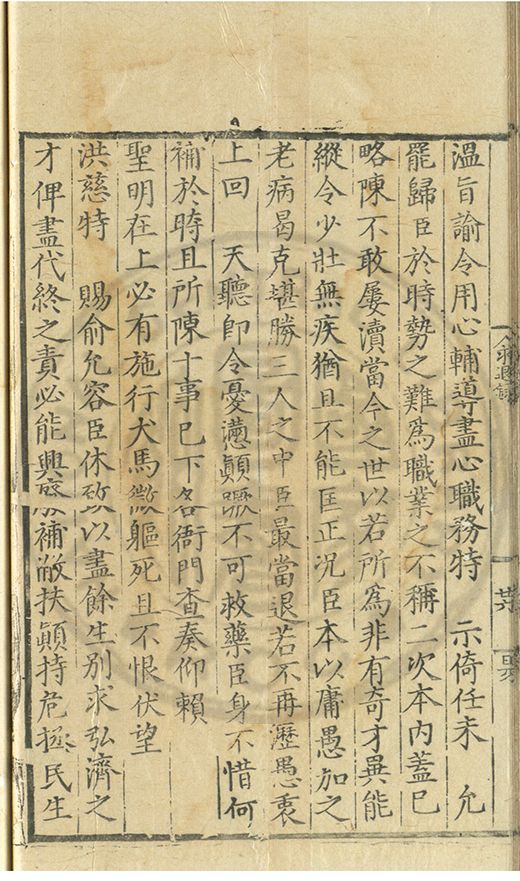 溫旨諭令用心輔導盡心職務特 示倚任未 允
罷歸臣於時勢之難為職業之不稱二次本內蓋已
略陳不敢屢瀆當今之世以若所為非有奇才異能
縱令少壯無疾猶且不能匡正況臣本以庸愚加之
老病曷克堪勝三人之中臣最當退若不再瀝愚衷
上回 天聽即令憂懣顛蹶不可救藥臣身不惜何
補於時且所陳十事已下各衙門查奏仰賴
聖明在上必有施行犬馬微軀死且不恨伏望
洪慈特 賜俞允容臣休致以盡餘生別求弘濟之
才俾盡代終之責必能興廢補敝扶顛持危拯民生